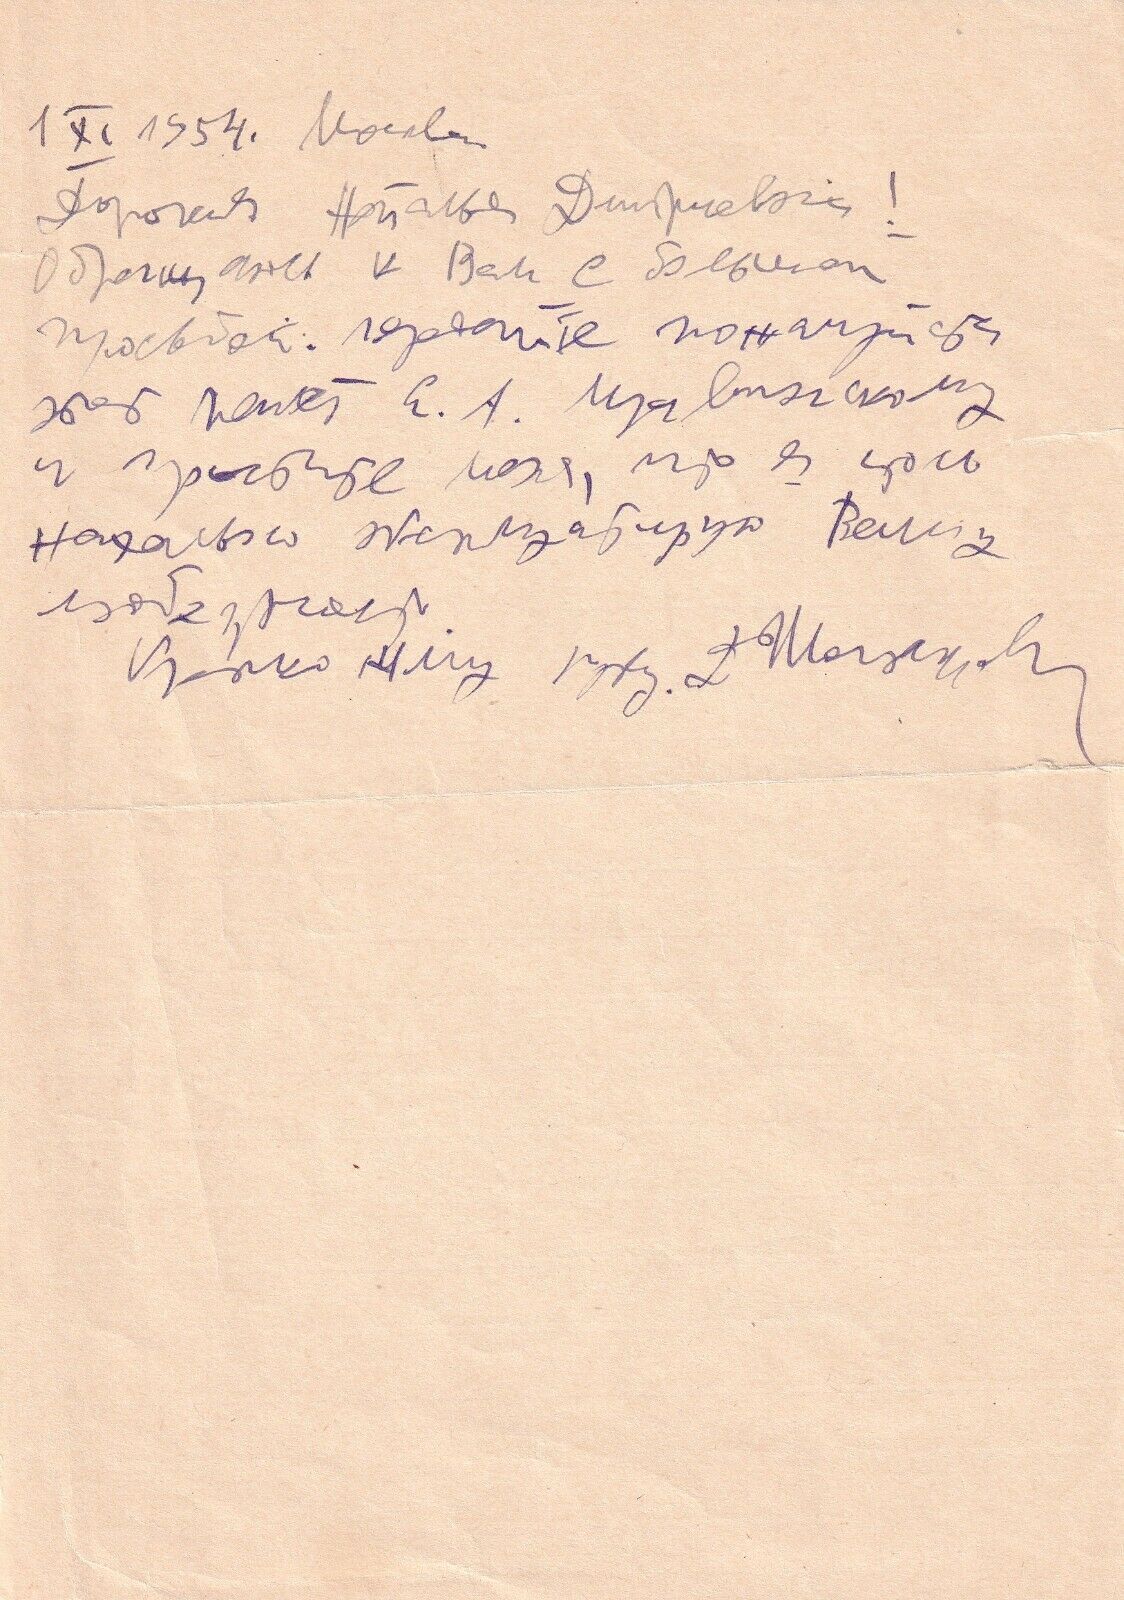 1 XI 1954. Москва
Дорогая Наталья Дмитриевна!
Обращаюсь к Вам с большой
просьбой. Передайте пожалуйста
этот пакет Е. А. Мравинскому
и простите меня, что я столь
нахально эксплуатирую Вашу
любезность.
Крепко жму руку. Д Шостакович